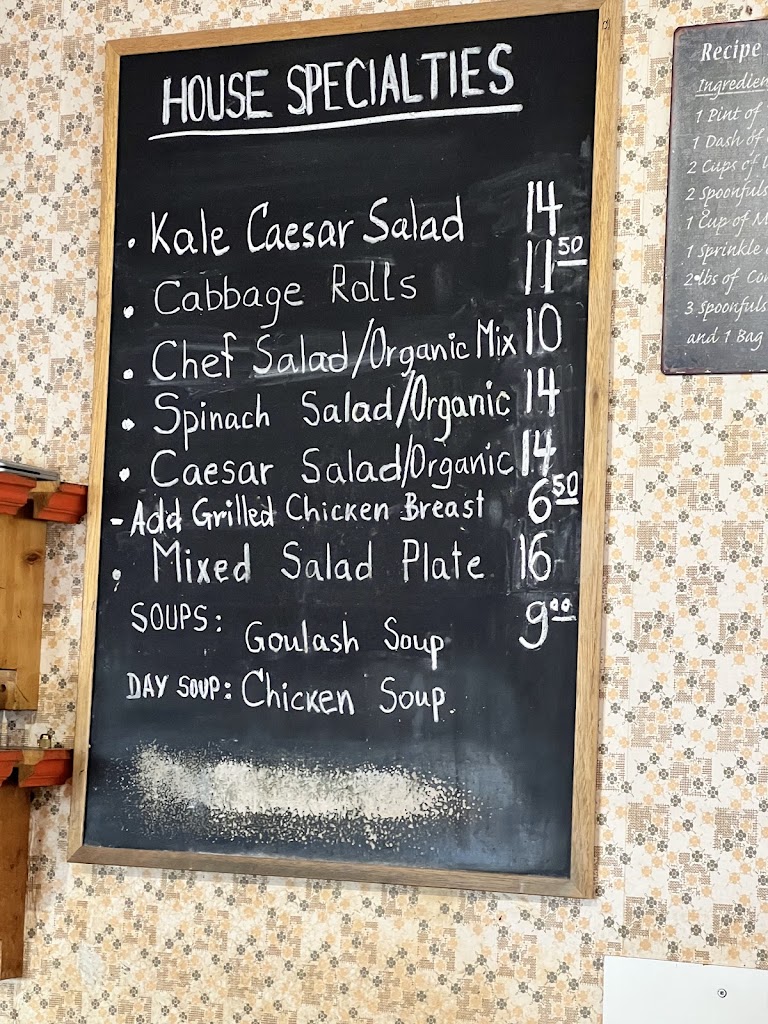 HOUSE SPECIALTIES
· Kale Caesar Salad 14
· Cabbage Rolls 11 50
· Chef Salad/Organic Mix 10
· Spinach Salad/Organic 14
· Caesar Salad/Organic 14
- Add Grilled Chicken Breast 6 50
· Mixed Salad Plate 16
SOUPS: Goulash Soup 9 00
DAY SOUP: Chicken Soup.
Recipe
Ingredien
1 Pint of
1 Dash of
2 Cups of
2 Spoonfuls
1 Cup of M
1 Sprinkle
2 lbs of Con
3 Spoonfuls
and 1 Bag